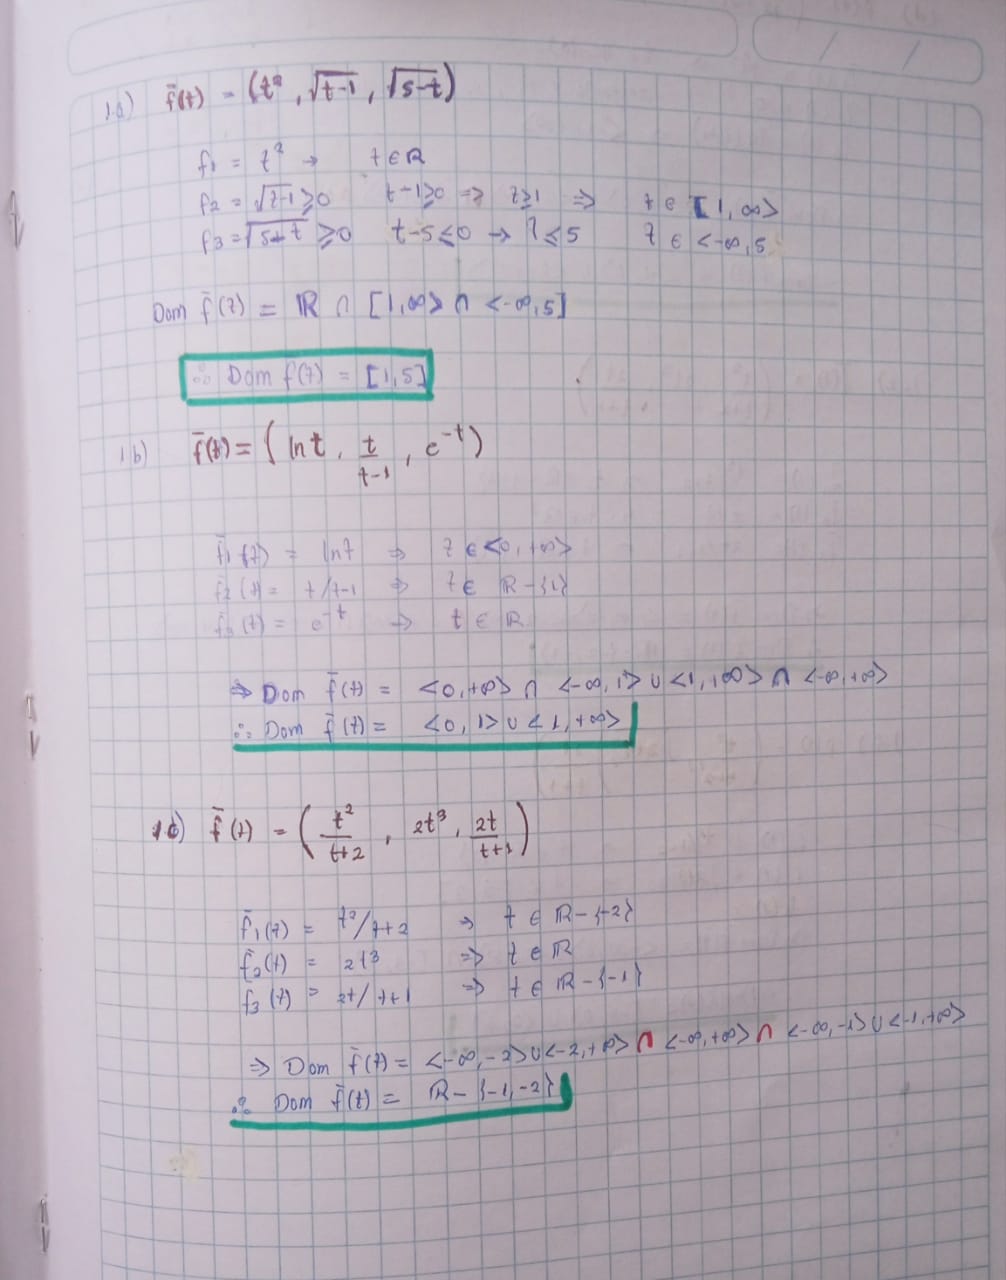 1.a) f̄(t) = (t², √t-1, √5-t)
f₁ = t² → t ∈ ℝ
f₂ = √t-1 ≥0 t-1≥0 => t≥1 => t ∈ [1, ∞>
f₃ = √5-t ≥0 t-5≤0 → t≤5 t ∈ <-∞, 5
Dom f̄(t) = ℝ ∩ [1,∞> ∩ <-∞,5]
∴ Dom f(t) = [1,5]
1b) f̄(t) = (ln t, t/t-1, e⁻ᵗ)
f̄₁(t) = ln t => t ∈ <0, +∞>
f₂(t) = t/t-1 => t ∈ ℝ-{1}
f₃(t) = e⁻ᵗ => t ∈ ℝ
=> Dom f̄(t) = <0,+∞> ∩ <-∞, 1> ∪ <1,+∞> ∩ <-∞,+∞>
∴ Dom f̄(t) = <0, 1> ∪ <1, +∞>
1c) f̄(t) = (t²/t+2, 2t³, 2t/t+1)
f̄₁(t) = t²/t+2 => t ∈ ℝ-{-2}
f̄₂(t) = 2t³ => t ∈ ℝ
f₃(t) = 2t/t+1 => t ∈ ℝ-{-1}
=> Dom f̄(t) = <-∞,-2>∪<-2,+∞> ∩ <-∞,+∞> ∩ <-∞,-1>∪<-1,+∞>
∴ Dom f̄(t) = ℝ-{-1,-2}